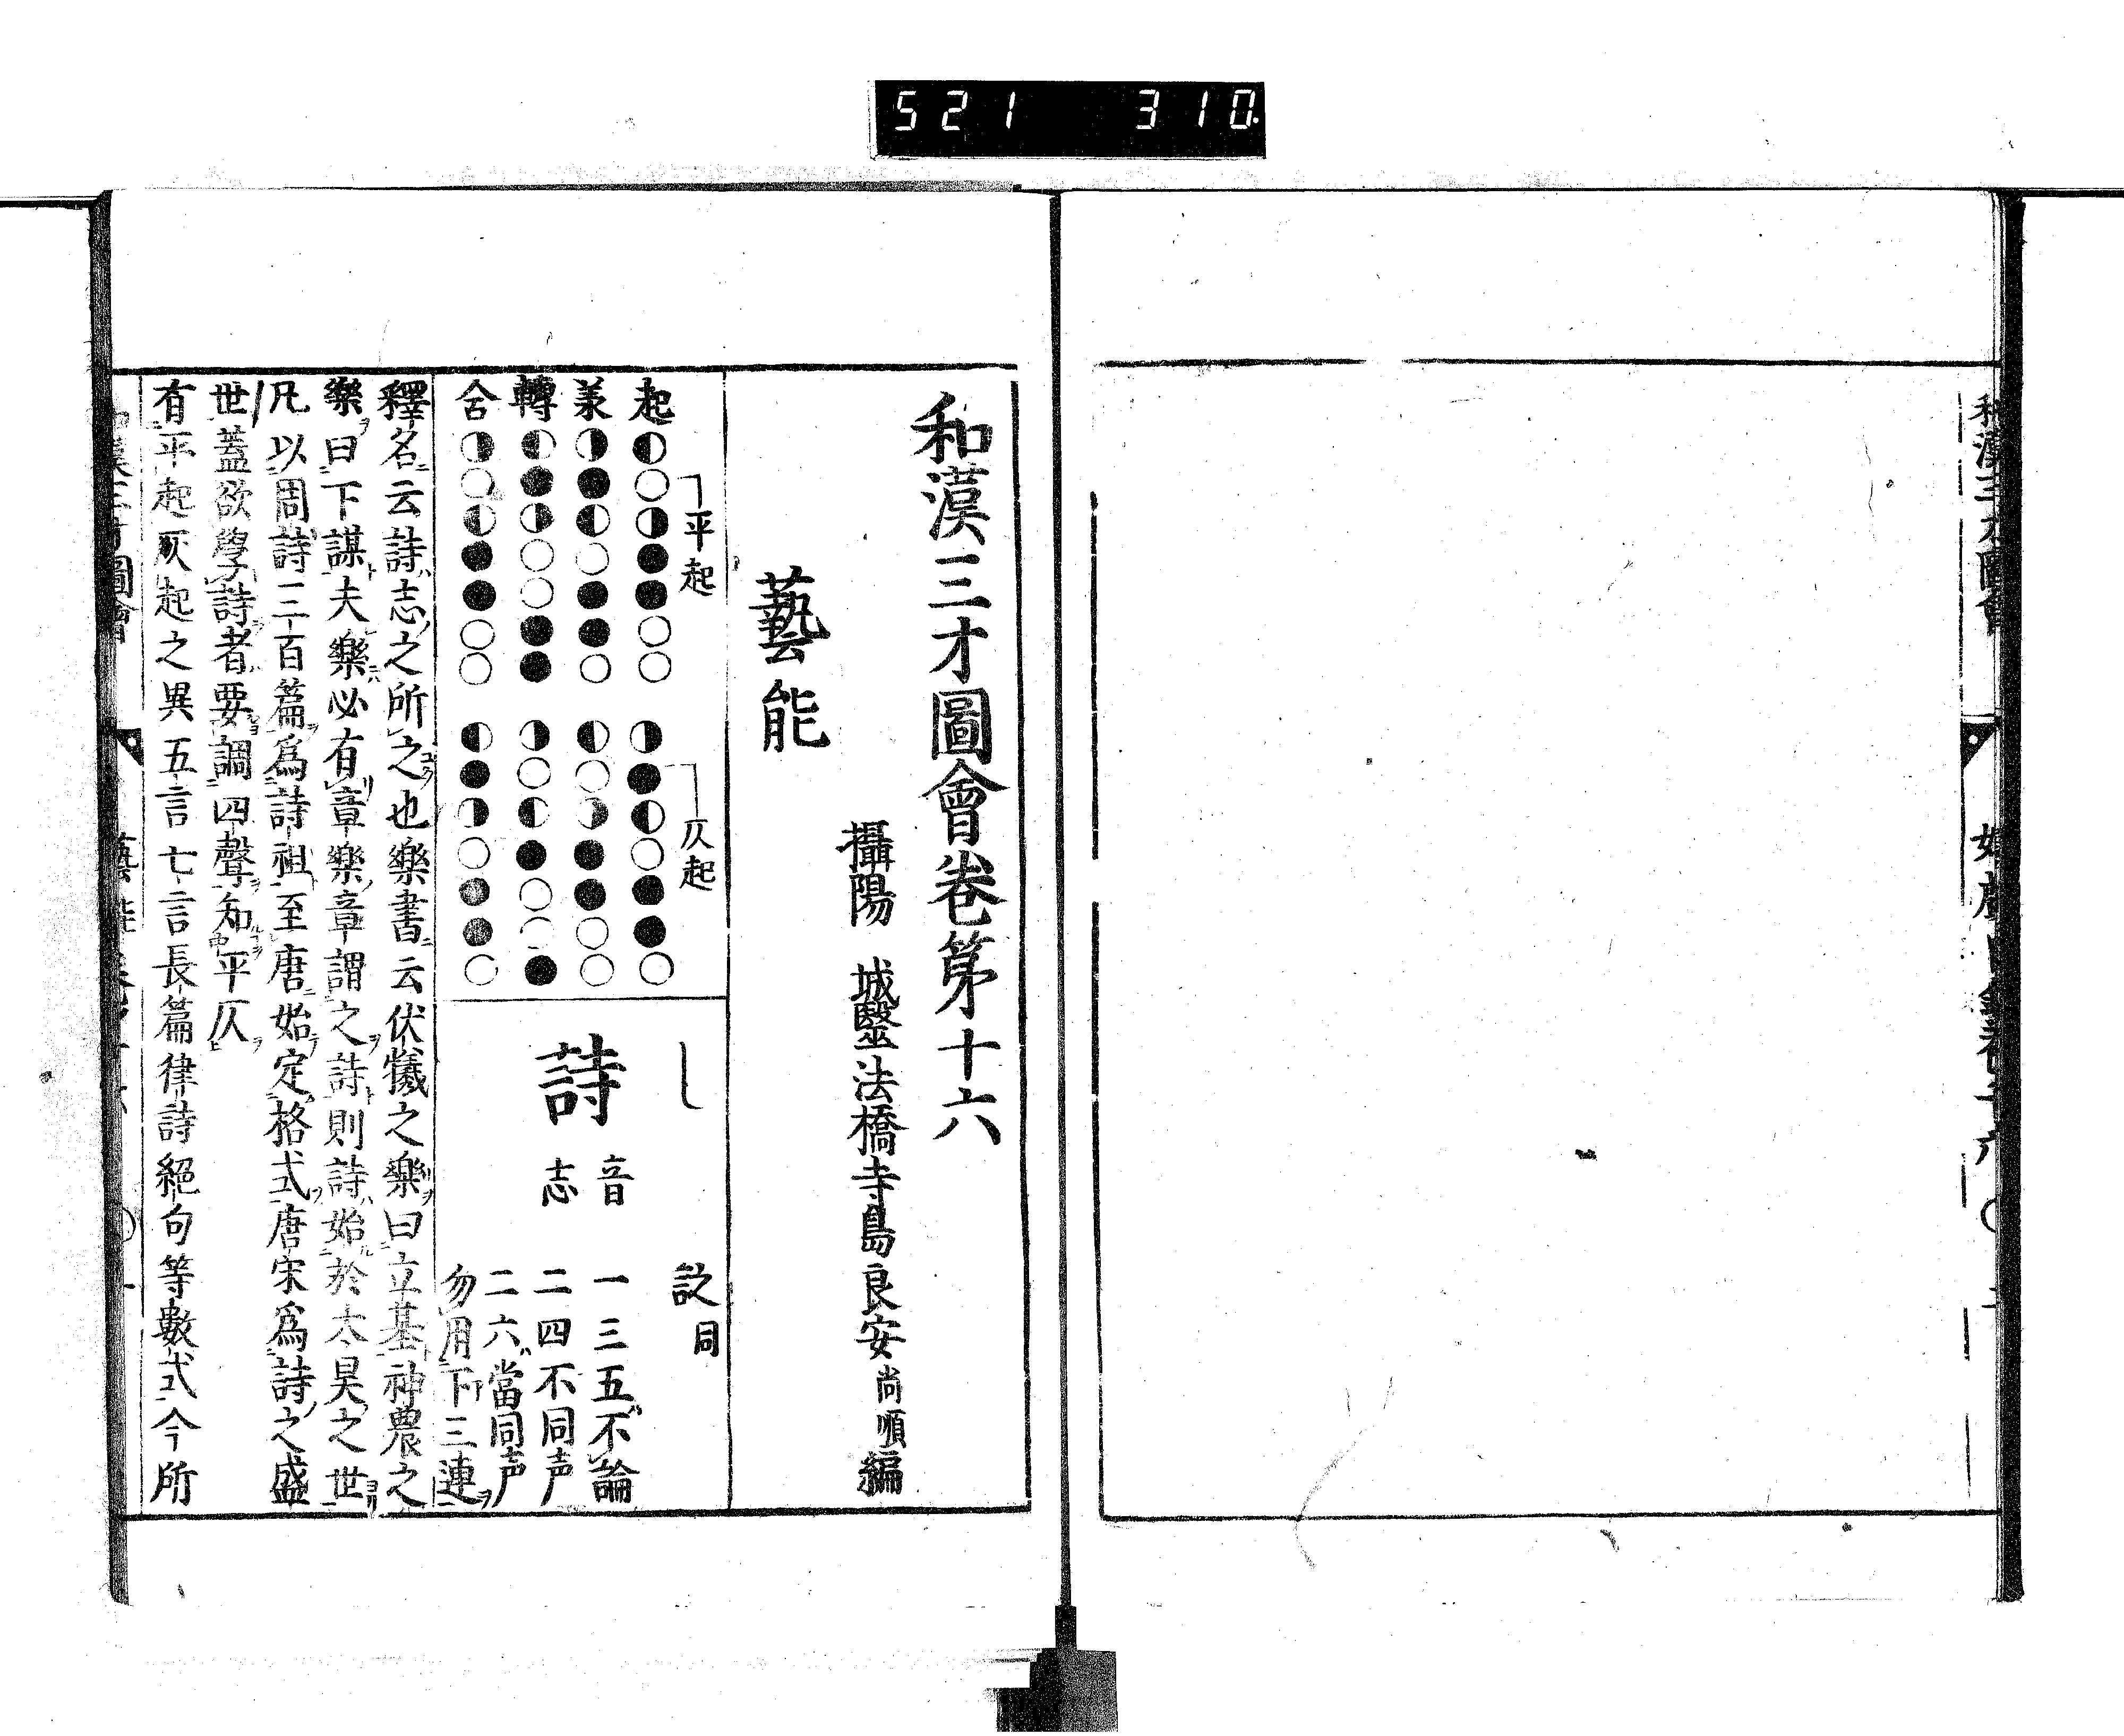 521 310
和漢三才圖會
和漢三才圖會卷第十六
攝陽 城醫法橋寺島良安尚順編
藝能
平起
仄起
起
承
轉
合
し
詩
音
志
䚶同
一三五不論
二四不同声
二六當同声
勿用下三連
釋名云詩志之所之也樂書云伏犧之樂曰立基神農之
樂曰下謀夫樂必有章樂章謂之詩則詩始於太昊之世
凡以周詩三百篇爲詩祖至唐始定格式唐宋爲詩之盛
世蓋欲學詩者要調四聲知平仄
有平起仄起之異五言七言長篇律詩絕句等數式今所